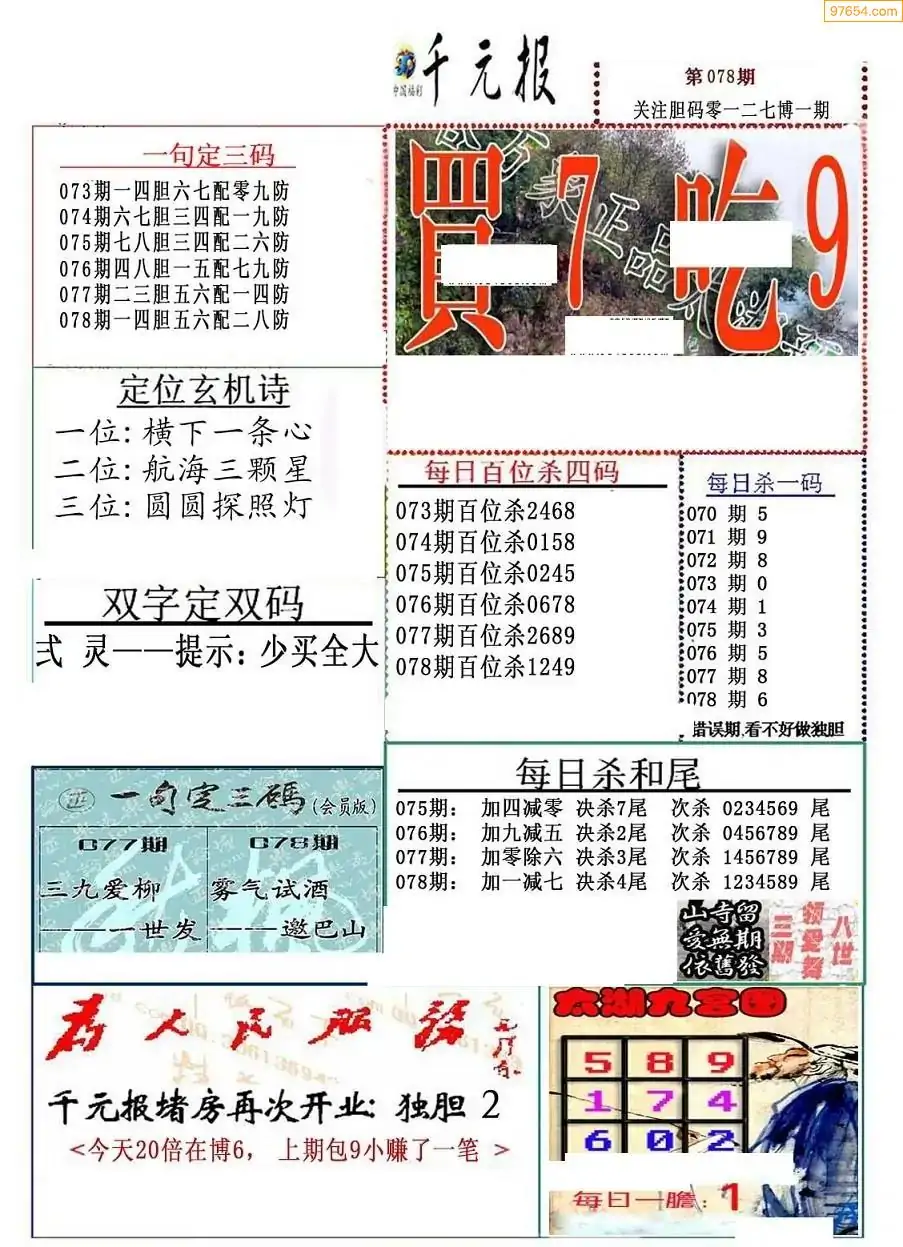 97654.com
千元报
中国福利
第078期
关注胆码零一二七博一期
一句定三码
073期一四胆六七配零九防
074期六七胆三四配一九防
075期七八胆三四配二六防
076期四八胆一五配七九防
077期二三胆五六配一四防
078期一四胆五六配二八防
買7吃9
定位玄机诗
一位: 横下一条心
二位: 航海三颗星
三位: 圆圆探照灯
每日百位杀四码
073期百位杀2468
074期百位杀0158
075期百位杀0245
076期百位杀0678
077期百位杀2689
078期百位杀1249
每日杀一码
070 期 5
071 期 9
072 期 8
073 期 0
074 期 1
075 期 3
076 期 5
077 期 8
078 期 6
错误期,看不好做独胆
双字定双码
弍 灵——提示: 少买全大
每日杀和尾
075期: 加四减零 决杀7尾 次杀 0234569 尾
076期: 加九减五 决杀2尾 次杀 0456789 尾
077期: 加零除六 决杀3尾 次杀 1456789 尾
078期: 加一减七 决杀4尾 次杀 1234589 尾
一句定三碼(会员版)
077期
三九爱柳
———一世发
078期
雾气试酒
———邀巴山
山寺留
愛無期
依舊發
三期
八世
为人民服务
千元报堵房再次开业: 独胆 2
<今天20倍在博6, 上期包9小赚了一笔 >
太湖九宫图
5 8 9
1 7 4
6 0 2
每日一膽: 1